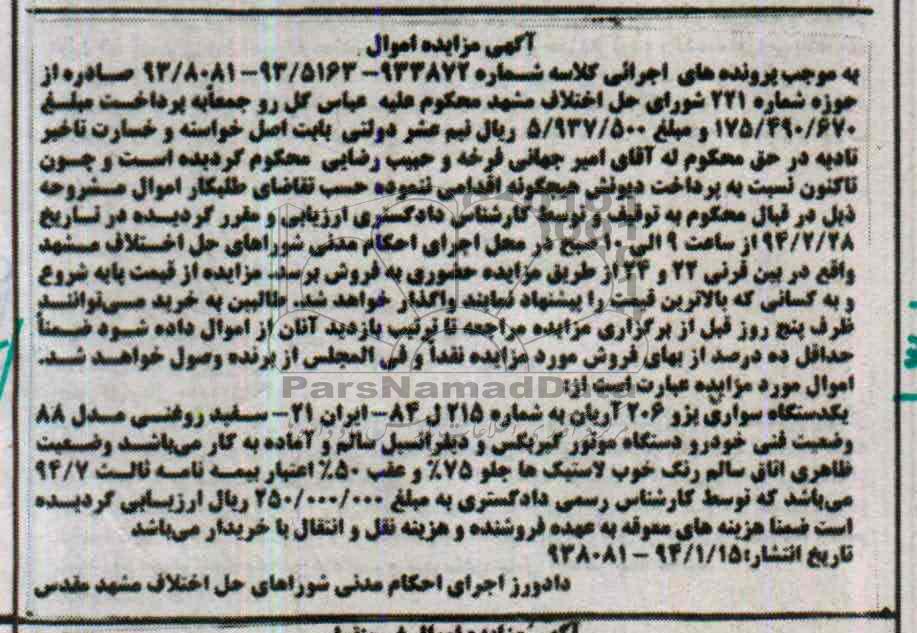 آگهی مزایده اموال
به موجب پرونده های اجرائی کلاسه شماره ۹۳۳۸۷۲– ۹۳/۵۱۶۳– ۹۳/۸۰۸۱ صادره از
حوزه شماره ۲۲۱ شورای حل اختلاف مشهد محکوم علیه عباس گل رو جمعاً به پرداخت مبلغ
۱۷۵/۴۹۰/۶۷۰ و مبلغ ۵/۹۳۷/۵۰۰ ریال نیم عشر دولتی بابت اصل خواسته و خسارت تاخیر
تادیه در حق محکوم له آقای امیر جهانی فرخه و حبیب رضایی محکوم گردیده است و چون
تاکنون نسبت به پرداخت دیونش هیچگونه اقدامی ننموده حسب تقاضای طلبکار اموال مشروحه
ذیل در قبال محکوم به توقیف و توسط کارشناس دادگستری ارزیابی و مقرر گردیده در تاریخ
۹۴/۲/۲۸ از ساعت ۹ الی ۱۰ صبح در محل اجرای احکام مدنی شوراهای حل اختلاف مشهد
واقع در بین قرنی ۲۲ و ۲۴ از طریق مزایده حضوری به فروش برسد. مزایده از قیمت پایه شروع
و به کسانی که بالاترین قیمت را پیشنهاد نمایند واگذار خواهد شد. طالبین به خرید می‌توانند
ظرف پنج روز قبل از برگزاری مزایده مراجعه تا ترتیب بازدید آنان از اموال داده شود ضمناً
حداقل ده درصد از بهای فروش مورد مزایده نقداً و فی المجلس از برنده وصول خواهد شد.
اموال مورد مزایده عبارت است از:
یکدستگاه سواری پژو ۲۰۶ آریان به شماره ۲۱۵ ل ۸۴– ایران ۲۱– سفید روغنی مدل ۸۸
وضعیت فنی خودرو دستگاه موتور گیربکس و دیفرانسیل سالم و آماده به کار می‌باشد وضعیت
ظاهری اتاق سالم رنگ خوب لاستیک ها جلو ۷۵٪ و عقب ۵۰٪ اعتبار بیمه نامه ثالث ۹۴/۷
می‌باشد که توسط کارشناس رسمی دادگستری به مبلغ ۲۵۰/۰۰۰/۰۰۰ ریال ارزیابی گردیده
است ضمنا هزینه های معوقه به عهده فروشنده و هزینه نقل و انتقال با خریدار می‌باشد
تاریخ انتشار:۹۴/۱/۱۵ – ۹۳۸۰۸۱
دادورز اجرای احکام مدنی شوراهای حل اختلاف مشهد مقدس
ParsNamadData